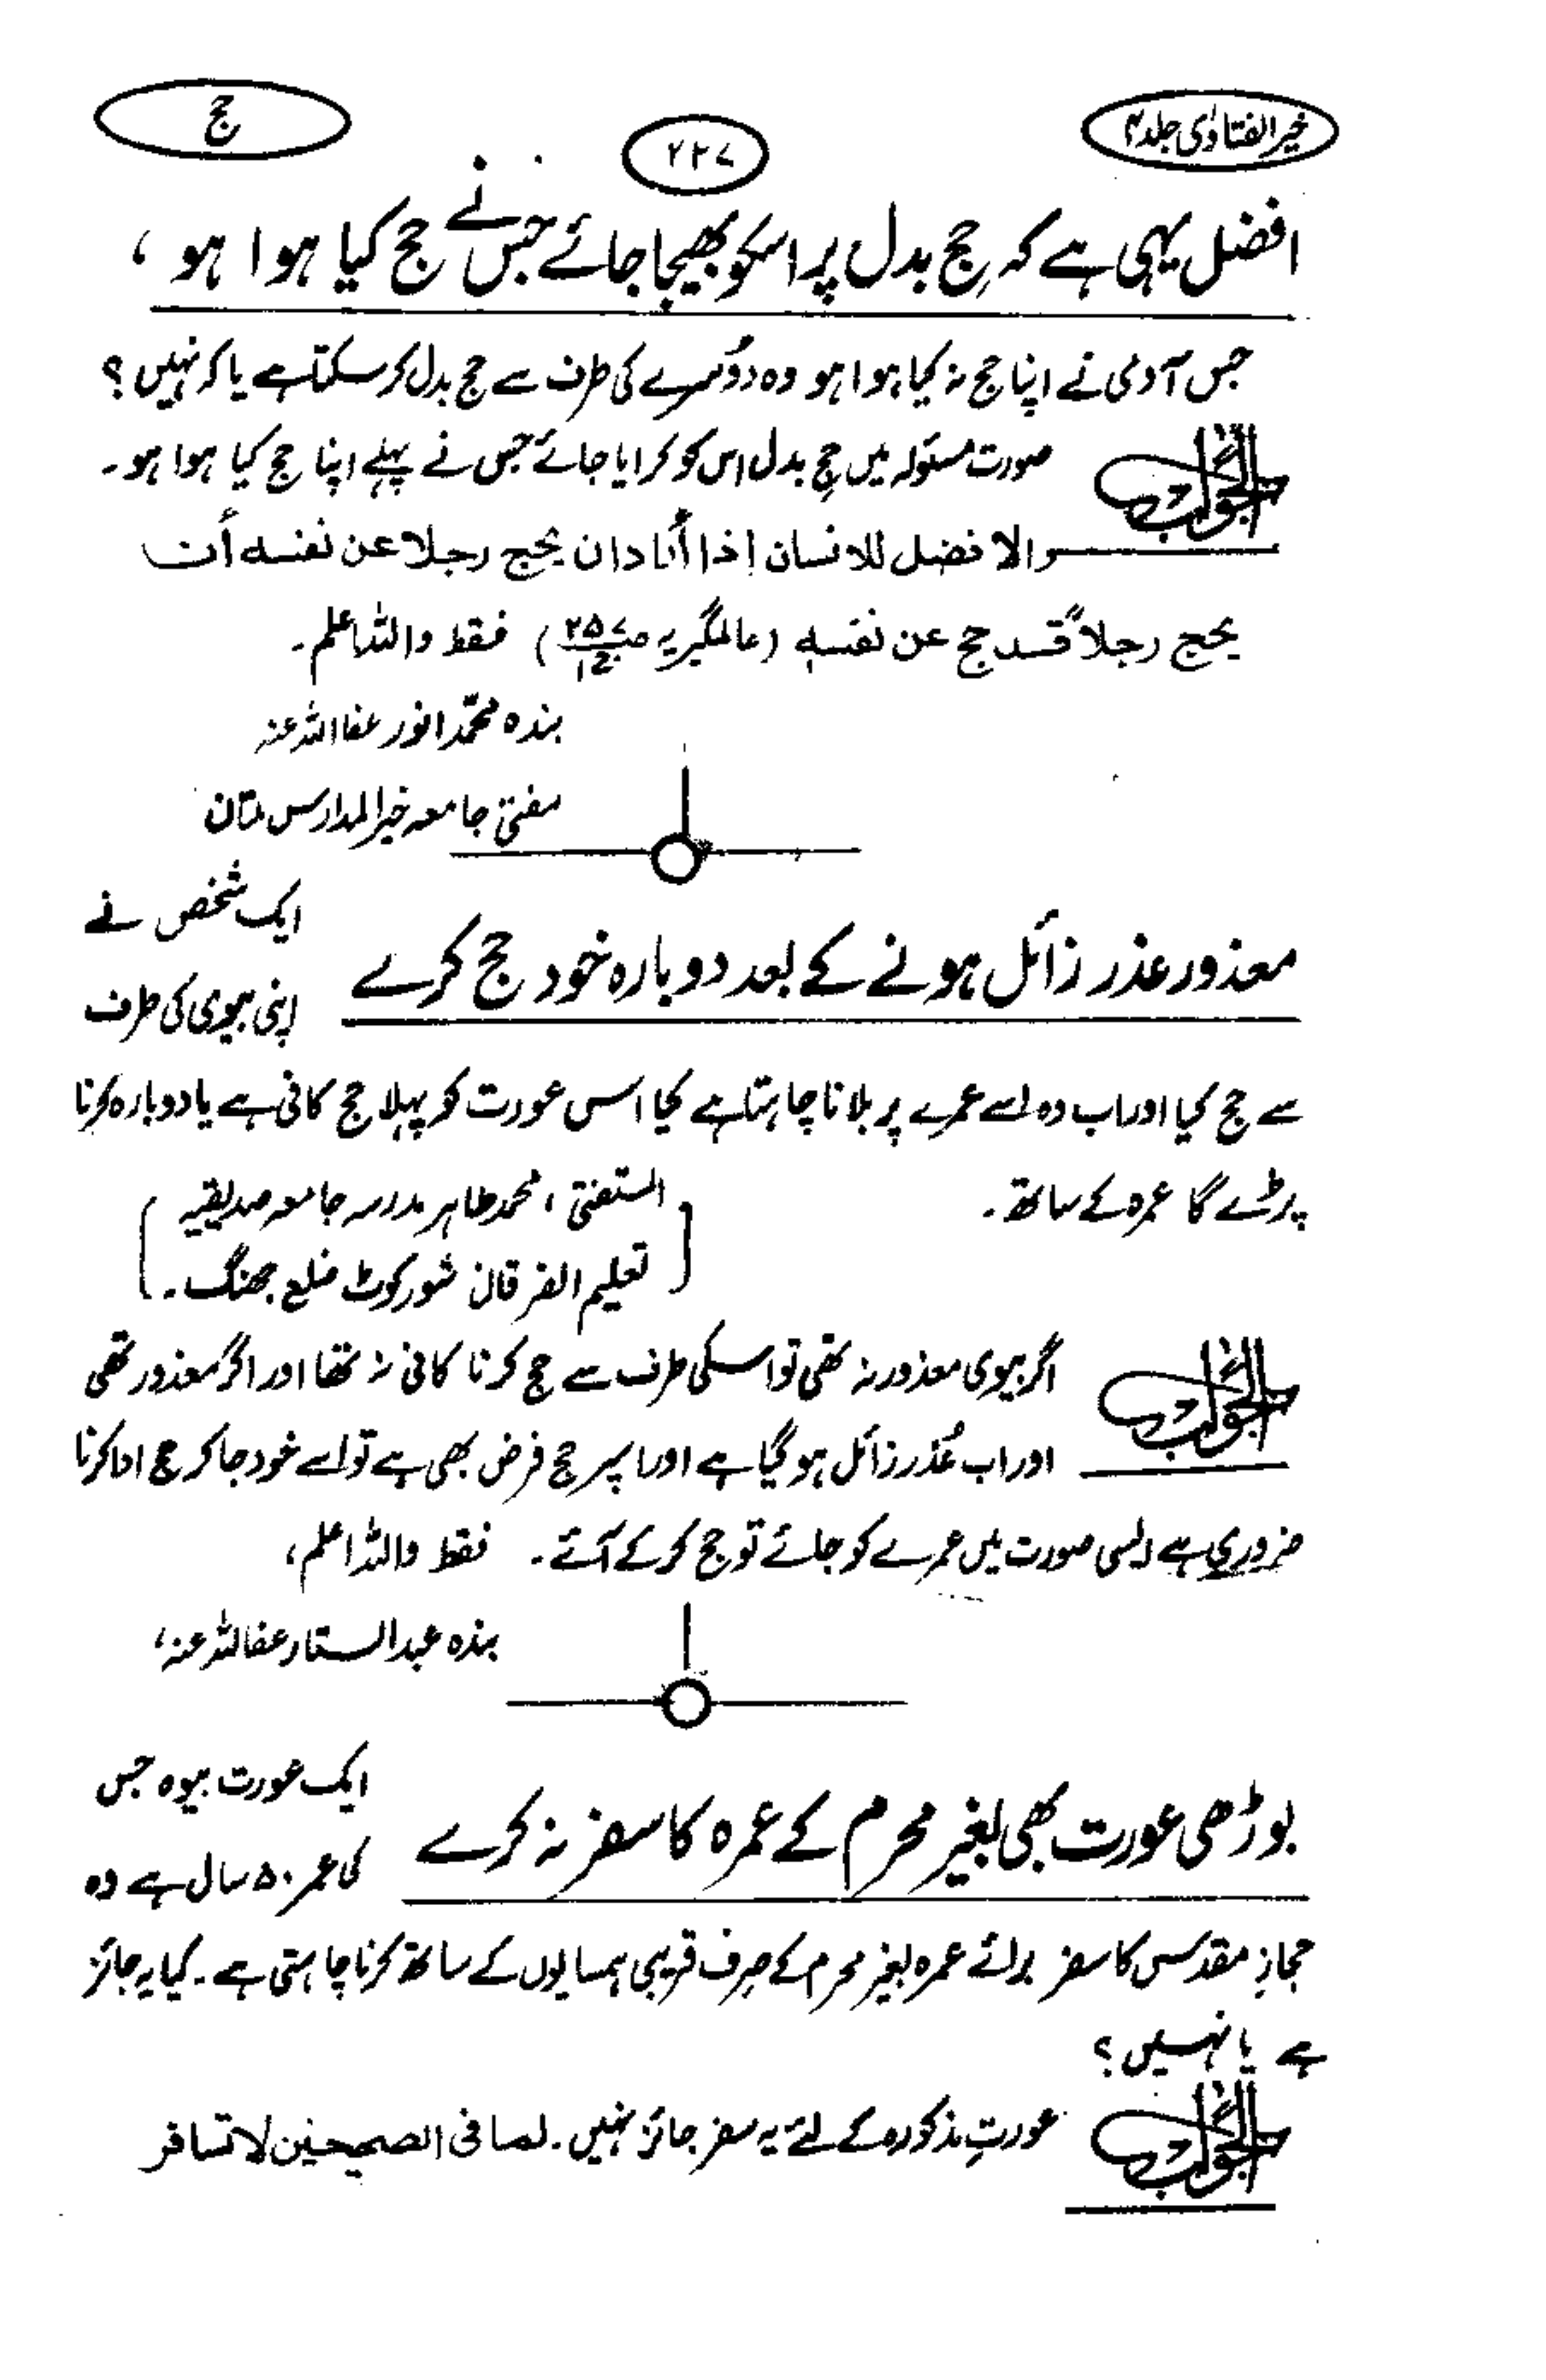 خیر الفتاوٰی جلد ۴
۲۲۷
حج
افضل یہی ہے کہ حجِ بدل پر اسکو بھیجا جائے جس نے حج کیا ہوا ہو ،
جس آدمی نے اپنا حج نہ کیا ہوا ہو وہ دوسرے کی طرف سے حج بدل کر سکتا ہے یا کہ نہیں ؟
الجواب صورت مسئولہ میں حجِ بدل اس کو کرایا جائے جس نے پہلے اپنا حج کیا ہوا ہو۔
والافضل للانسان إذا أرادان يحج رجلا عن نفسه أن
يحج رجلاً قد حج عن نفسه (عالمگیریہ ص۲۵۷ ج۱) فقط واللہ اعلم۔
بندہ محمّد انور عفا اللہ عنہ
مفتی جامعہ خیر المدارس ملتان
معذور عذر زائل ہونے کے بعد دوبارہ خود حج کرے
ایک شخص نے
اپنی بیوی کی طرف
سے حج کیا اور اب وہ اسے عمرے پر بلانا چاہتا ہے کیا اس عورت کو پہلا حج کافی ہے یا دوبارہ کرنا
پڑے گا عمرہ کے ساتھ۔
المستفتی ، محمد طاہر مدرسہ جامعہ صدیقیہ
تعلیم الفرقان شورکوٹ ضلع جھنگ۔
الجواب اگر بیوی معذور نہ تھی تو اسکی طرف سے حج کرنا کافی نہ تھا اور اگر معذور تھی
اور اب عُذر زائل ہو گیا ہے اور اسپر حج فرض بھی ہے تو اسے خود جا کر حج ادا کرنا
ضروری ہے ایسی صورت میں عمرے کو جائے تو حج کرکے آئے۔ فقط واللہ اعلم ،
بندہ عبدالستار عفا اللہ عنہ ،
بوڑھی عورت بھی بغیر محرم کے عمرہ کا سفر نہ کرے
ایک عورت بیوہ جس
کی عمر ۵۰ سال ہے وہ
حجازِ مقدس کا سفر برائے عمرہ بغیر محرم کے صِرف قریبی ہمسایوں کے ساتھ کرنا چاہتی ہے۔ کیا یہ جائز
ہے یا نہیں ؟
الجواب عورتِ مذکورہ کے لئے یہ سفر جائز نہیں۔ لما فی الصحيحين لا تسافر